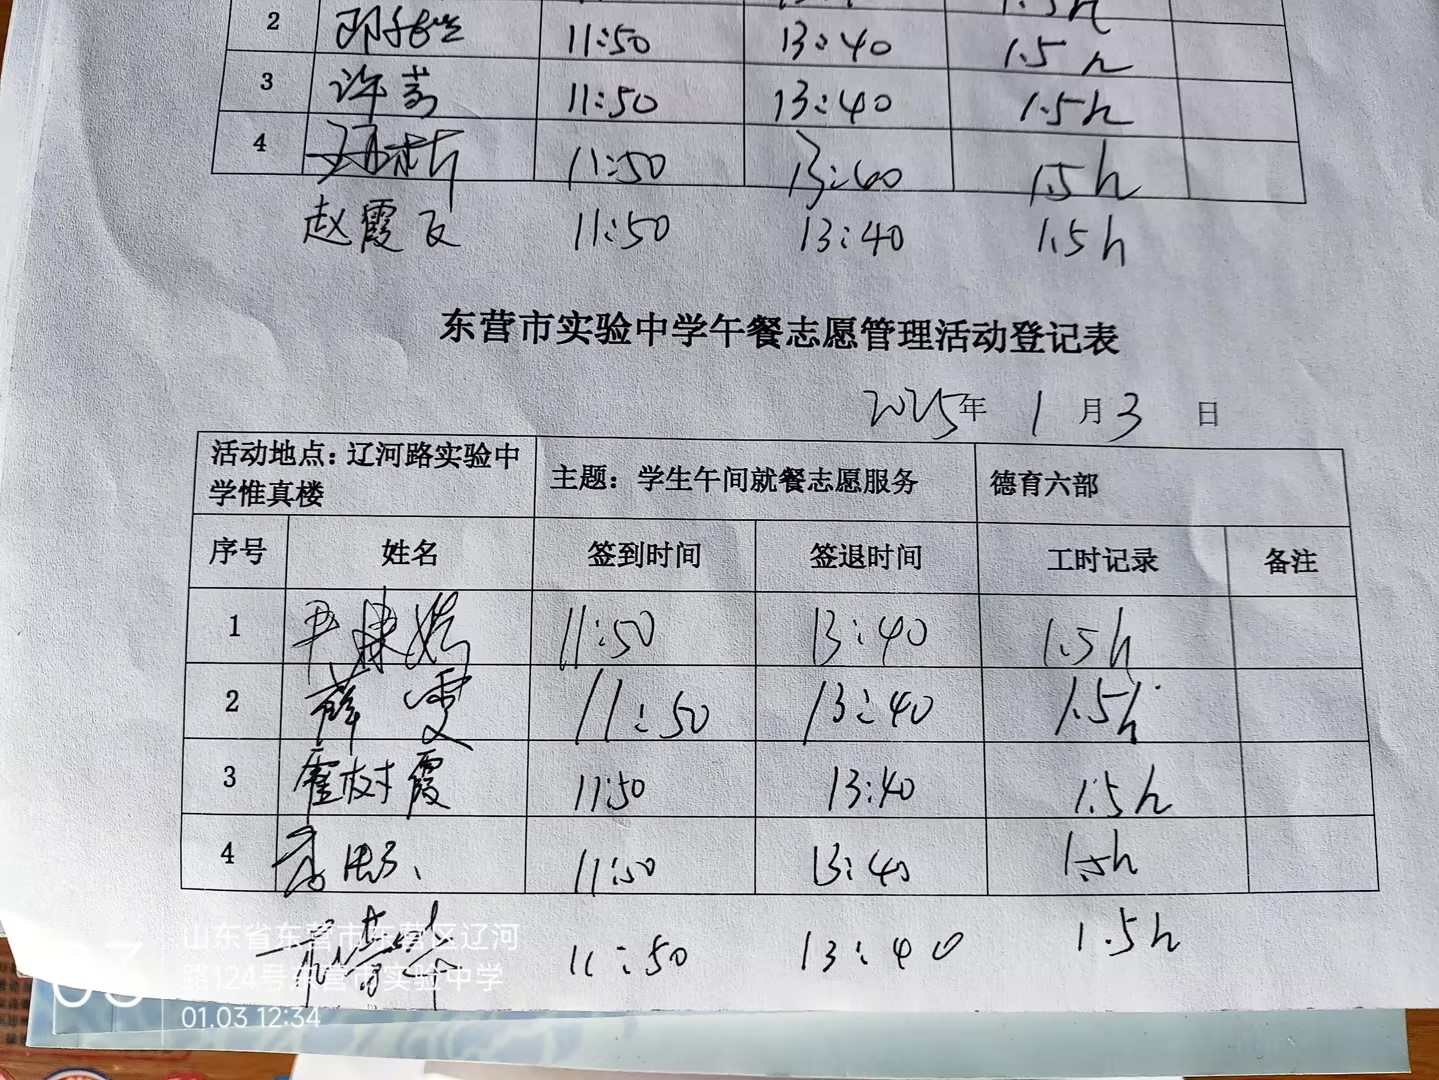 1.5h
2 11:50 13:40 1.5h
3 许芳 11:50 13:40 1.5h
4 11:50 13:40 1.5h
赵霞飞 11:50 13:40 1.5h
东营市实验中学午餐志愿管理活动登记表
2025年 1月3 日
活动地点：辽河路实验中学惟真楼 主题：学生午间就餐志愿服务 德育六部
序号 姓名 签到时间 签退时间 工时记录 备注
1 11:50 13:40 1.5h
2 薛雯 11:50 13:40 1.5h
3 霍树霞 11:50 13:40 1.5h
4 11:50 13:40 1.5h
11:50 13:40 1.5h
03
山东省东营市东营区辽河
路124号东营市实验中学
01.03 12:34